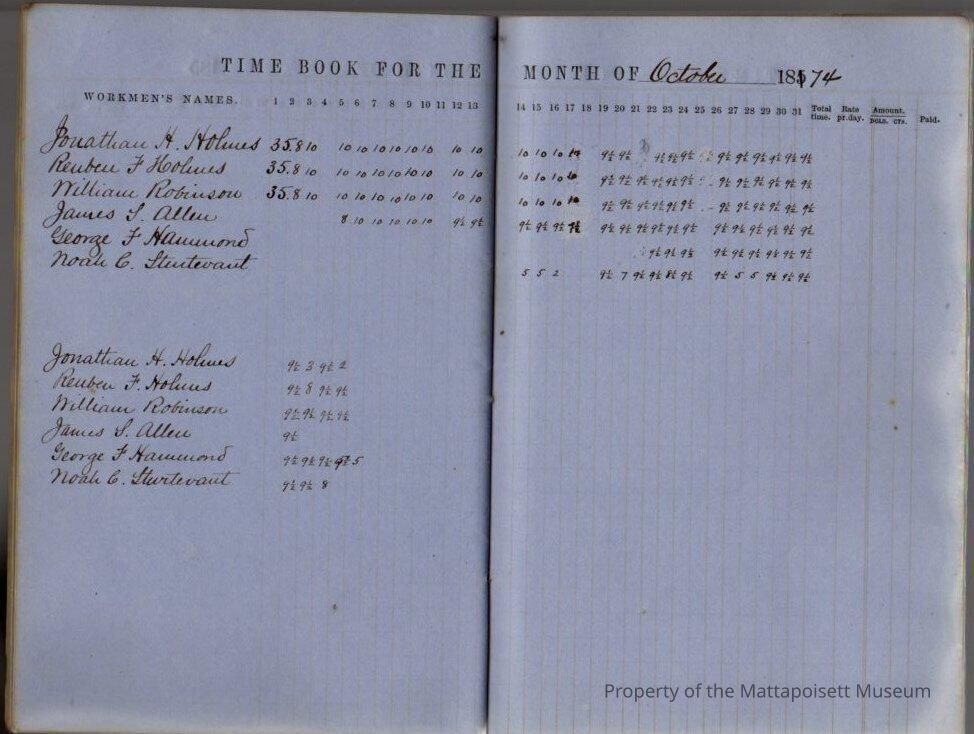 TIME BOOK FOR THE MONTH OF October 1874
WORKMEN'S NAMES. 1 2 3 4 5 6 7 8 9 10 11 12 13 14 15 16 17 18 19 20 21 22 23 24 25 26 27 28 29 30 31 Total time. Rate pr.day. Amount. DOLS. CTS. Paid.
Jonathan H. Holmes 35.8 10 10 10 10 10 10 10 10 10 10 10 10
Reuben F Holmes 35.8 10 10 10 10 10 10 10 10 10 10 10 10
William Robinson 35.8 10 10 10 10 10 10 10 10 10 10 10 10
James S. Allen 8 10 10 10 10 10 9½ 9½ 9½ 9½ 9½ 7½ 9½ 9½ 9½ 9½ 9½ 9½ 9½ 9½ 9½ 9½ 9½ 9½
George F Hammond 9½ 9½ 9½ 9½ 9½ 9½ 9½ 9½ 9½
Noah C. Sturtevant 5 5 2 9½ 7 9½ 9½ 8½ 9½ 9½ 5 5 9½ 9½ 9½
Jonathan H. Holmes 9½ 3 9½ 2
Reuben F. Holmes 9½ 8 9½ 9½
William Robinson 9½ 9½ 9½ 9½
James S. Allen 9½
George F Hammond 9½ 9½ 9½ 9½ 5
Noah C. Sturtevant 9½ 9½ 8
Property of the Mattapoisett Museum